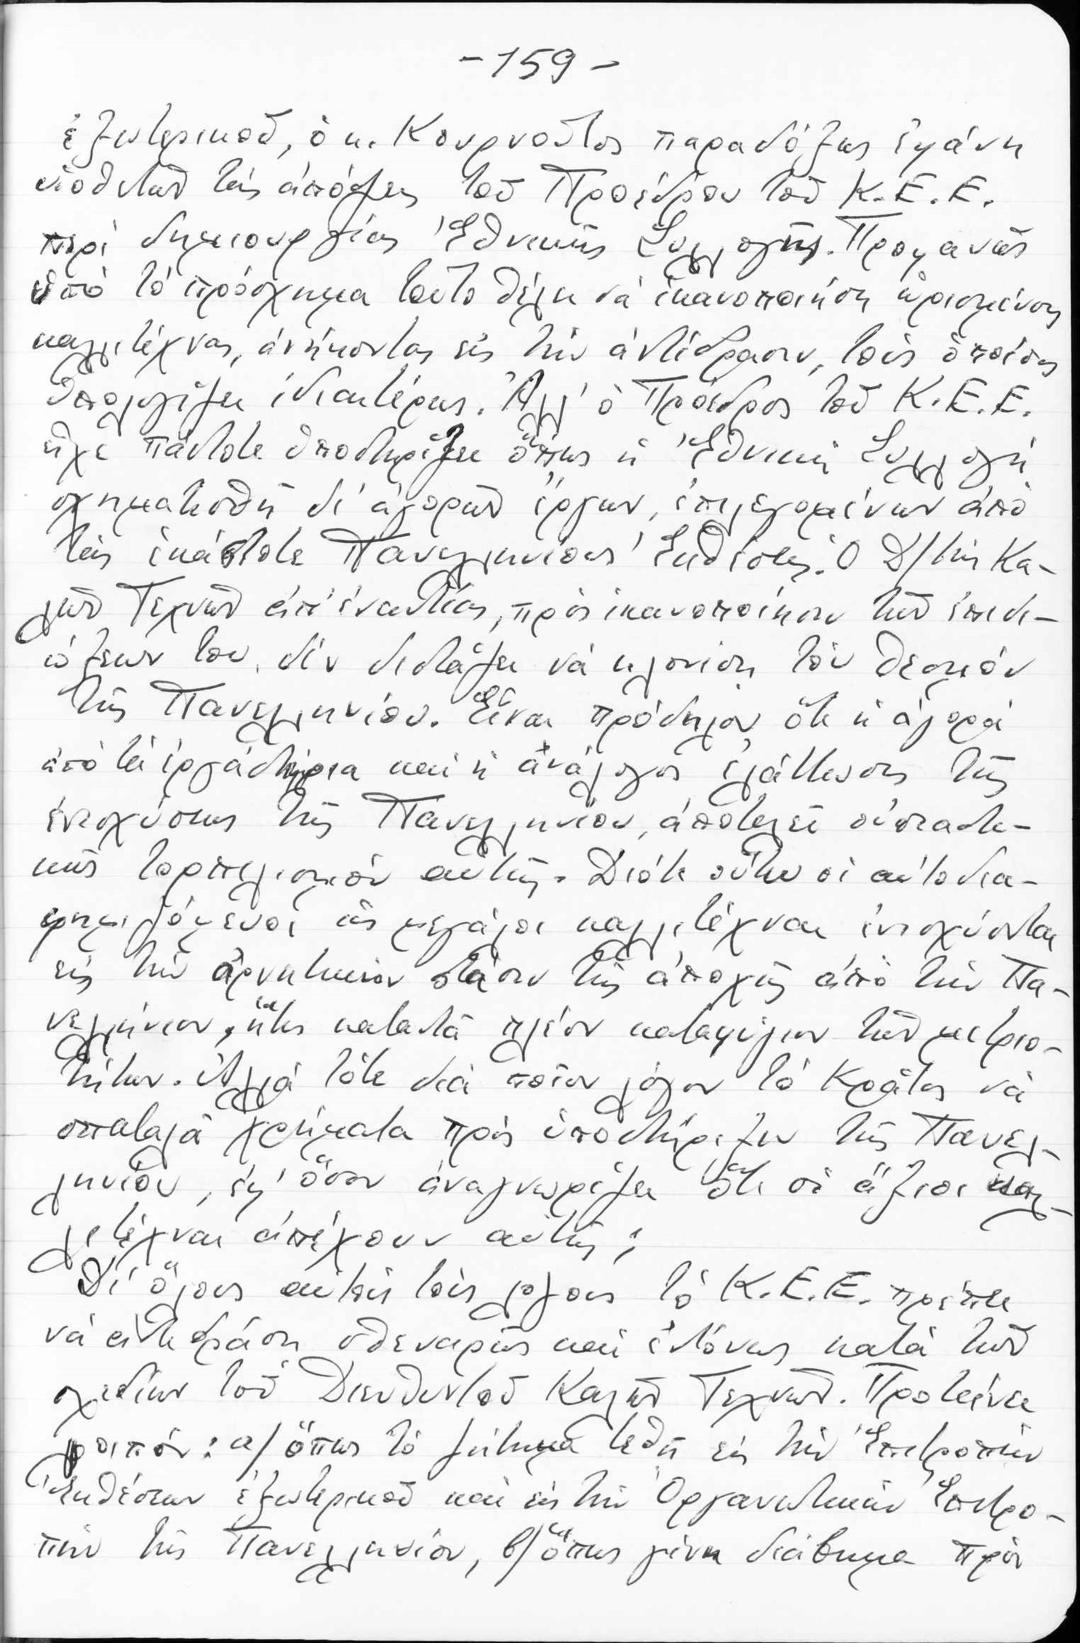 -159-
ἐξωτερικοῦ, ὁ κ. Κουρνοῦτος παραδόξως ἐφάνη
υἱοθετῶν τὰς ἀπόψεις τοῦ Προέδρου τοῦ Κ.Ε.Ε.
περὶ δημιουργίας Ἐθνικῆς Συλλογῆς. Προφανῶς
ὑπὸ τὸ πρόσχημα τοῦτο θέλει νὰ ἱκανοποιήση ὡρισμένους
καλλιτέχνας, ἀνήκοντας εἰς τὴν ἀντίδρασιν, τοὺς ὁποίους
ὑπολογίζει ἰδιαιτέρως. Ἀλλ' ὁ Πρόεδρος τοῦ Κ.Ε.Ε.
εἶχε πάντοτε ὑποστηρίξει ὅπως ἡ Ἐθνικὴ Συλλογὴ
σχηματισθῆ δι' ἀγορῶν ἔργων, ἐπιλεγομένων ἀπὸ
τὰς ἑκάστοτε Πανελληνίους Ἐκθέσεις. Ὁ Δ/τὴς Κα-
λῶν Τεχνῶν ἀπ' ἐναντίας, πρὸς ἱκανοποίησιν τῶν ἐπιδι-
ώξεων του, δὲν διστάζει νὰ κλονίση τὸν θεσμὸν
τῆς Πανελληνίου. Εἶναι πρόδηλον ὅτι ἡ ἀγορὰ
ἀπὸ τὰ ἐργαστήρια καὶ ἡ ἀνάλογος ἐλάττωσις τῆς
ἐνισχύσεως τῆς Πανελληνίου, ἀποτελεῖ οὐσιαστι-
κῶς τορπιλισμὸν αὐτῆς. Διότι οὕτω οἱ αὐτοδια-
φημιζόμενοι ὡς μεγάλοι καλλιτέχναι ἐνισχύονται
εἰς τὴν ἀρνητικὴν στάσιν τῆς ἀποχῆς ἀπὸ τὴν Πα-
νελλήνιον, ἥτις καταντᾶ πλέον καταφύγιον τῶν μετριο-
τήτων. Ἀλλὰ τότε διὰ ποῖον λόγον τὸ Κράτος νὰ
σπαταλᾶ χρήματα πρὸς ὑποστήριξιν τῆς Πανελ-
ληνίου, ἐφ' ὅσον ἀναγνωρίζει ὅτι οἱ ἄξιοι καλ-
λιτέχναι ἀπέχουν αὐτῆς;
Δι' ὅλους αὐτοὺς τοὺς λόγους τὸ Κ.Ε.Ε. πρέπει
νὰ ἀντιδράση σθεναρῶς καὶ ἐντόνως κατὰ τῶν
σχεδίων τοῦ Διευθυντοῦ Καλῶν Τεχνῶν. Προτείνει
λοιπόν: α/ ὅπως τὸ ζήτημα τεθῆ εἰς τὴν Ἐπιτροπὴν
Ἐκθέσεων ἐξωτερικοῦ καὶ εἰς τὴν Ὀργανωτικὴν Ἐπιτρο-
πὴν τῆς Πανελληνίου, β/ ὅπως γίνη διάβημα πρὸς